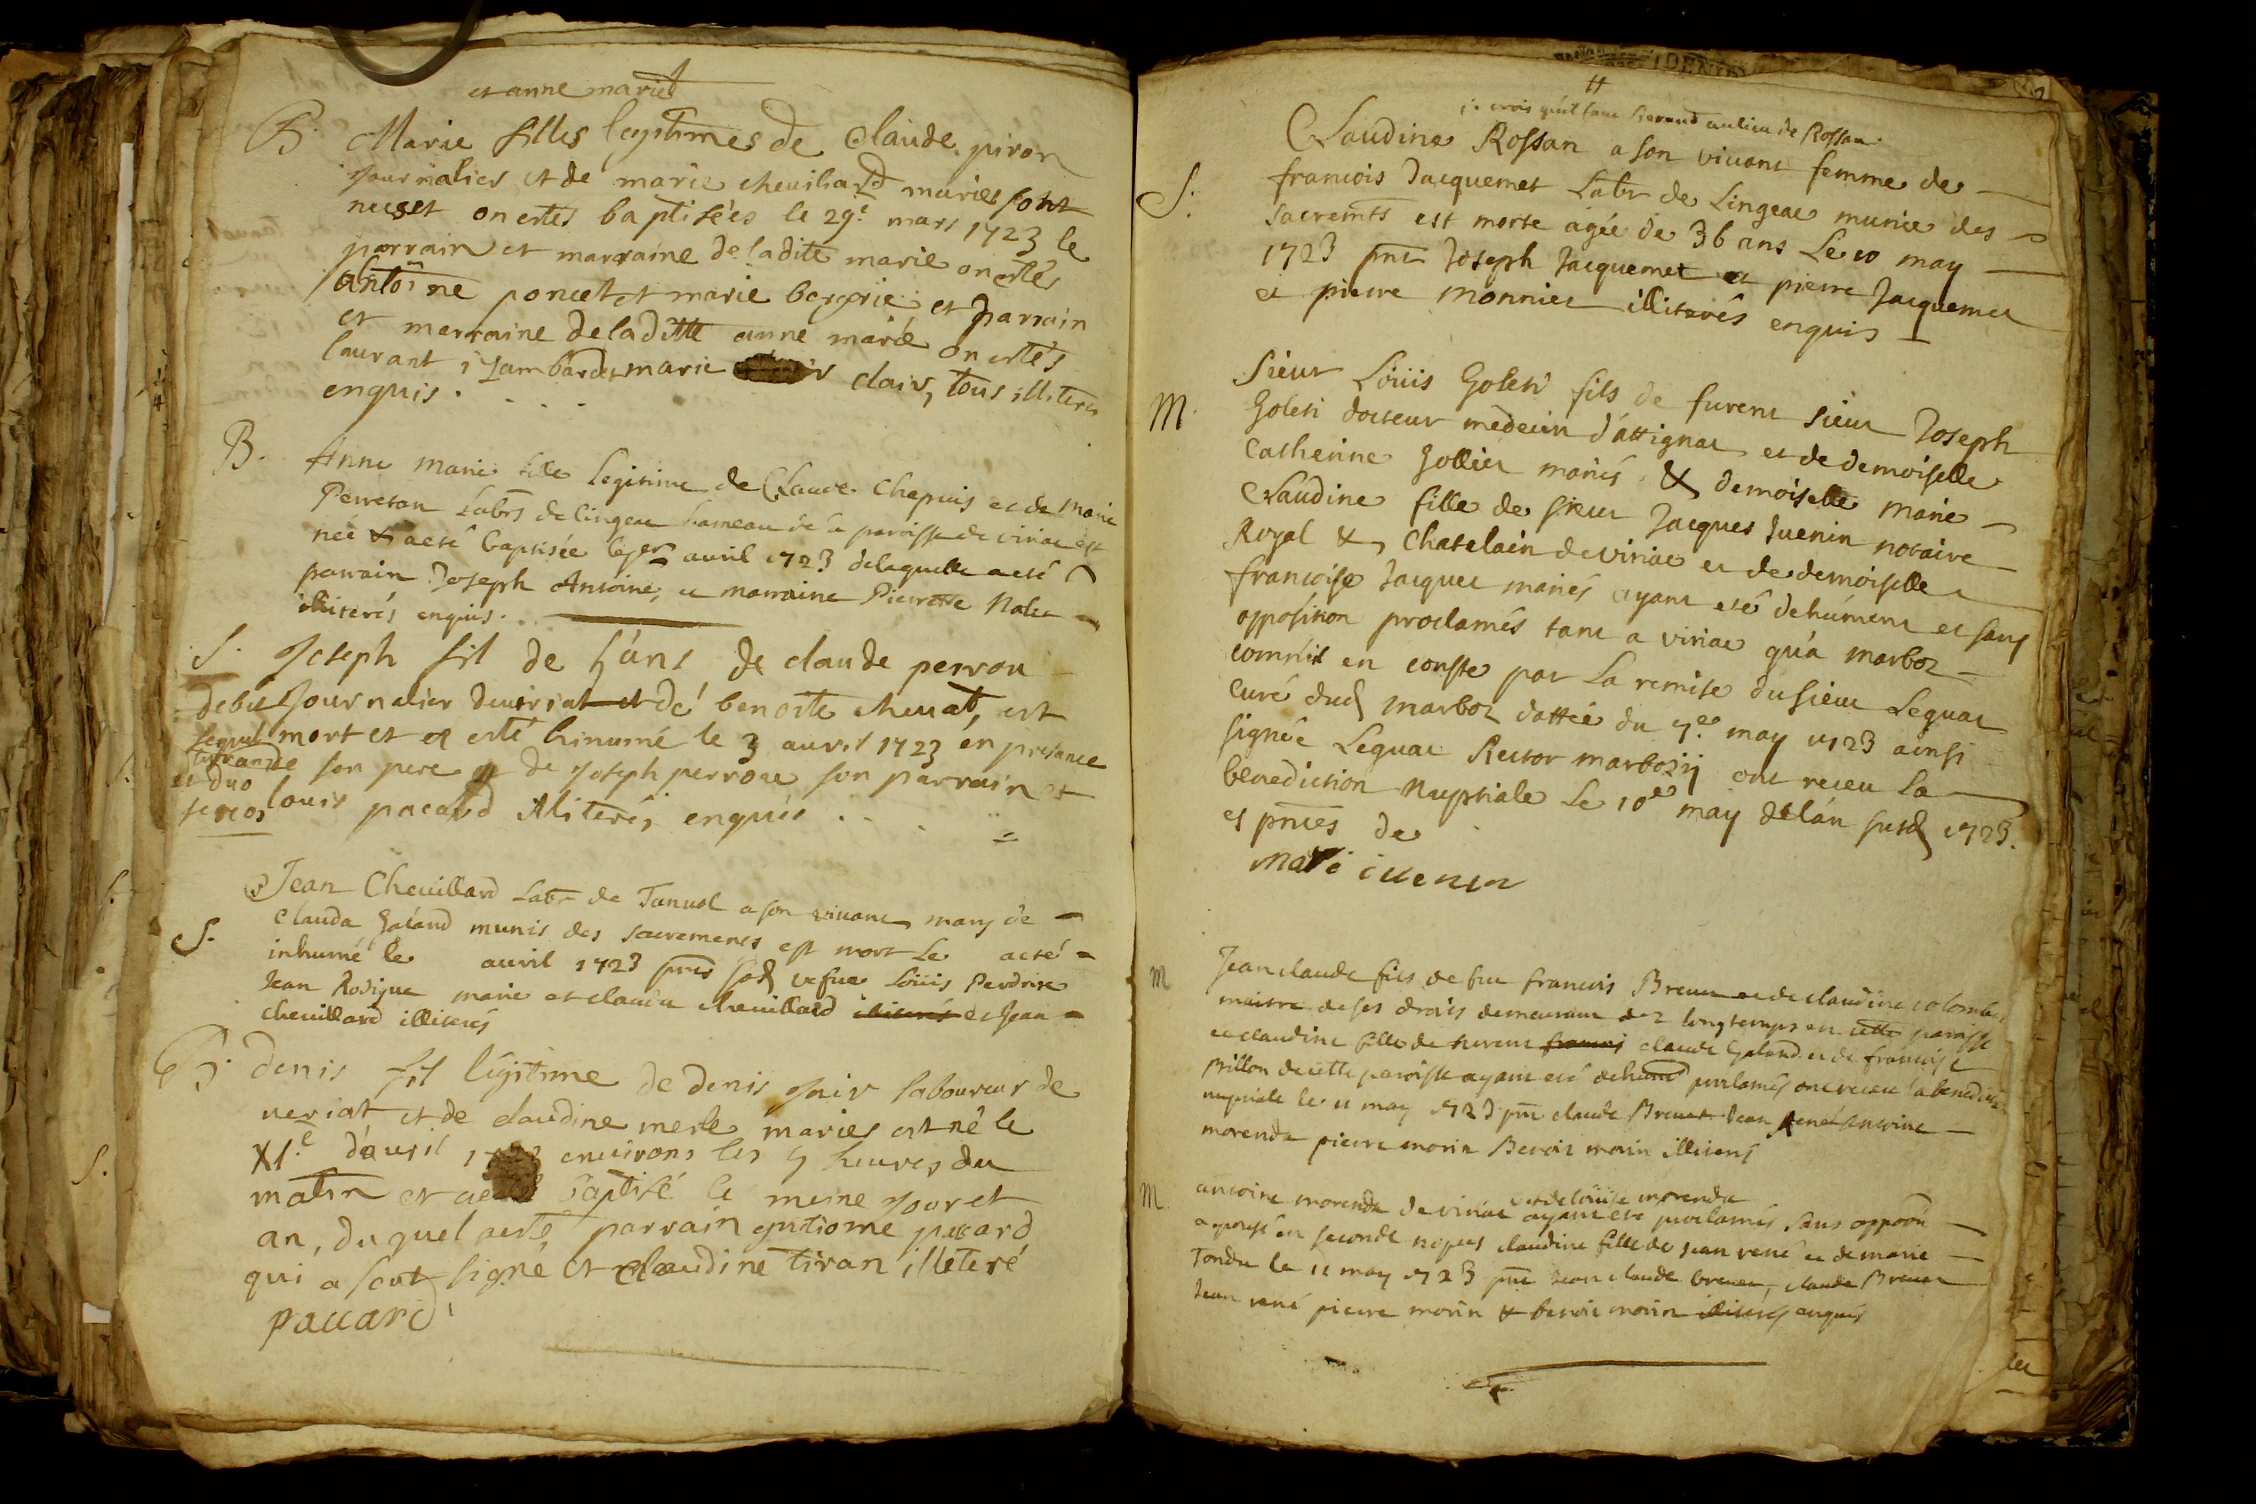 et anne marie
B. Marie filles legitimes de Claude piron
journalier et de marie cheuiliard mariés sont
neeset on estes baptisées le 29.e mars 1723 le
parrain et marraine de ladite marie on estés
Antoine poncet et marie borgrie et parrain
et marraine deladitte anne marie on estés
laurant j Lambard et marie clair, tous illiteres
enquis . . . .
B. Anne marie fille legitime de Claude Chapuis et de Marie
Perretan Labrs de lingeac hameau de la paroisse de viriac est
née & a eté baptisée le avril 1723 delaquelle a eté
parrain Joseph Antoine, et marraine Pierrette
illiterés enquis . .
S. Joseph fil de ans de claude perrou
journalier deuiriat et dé benoite cheuat, est
mort et a esté hinumé le 3 auvril 1723 en presance
de son pere de Joseph perroue son parrain et
louis pacard illiterés enquis . . .
debit
sequit
et duo
Jean Cheuillard Labr de Tanuol a son vivant mary de
S. Clauda Galand munis des sacrements est mort Le a eté
inhumé le avril 1723 Louis Perdrix
Jean Rodigue marie et claudu cheuillard illiterés et Jean
cheuillard illiterés
B. denis fil légitime de denis joir laboureur de
ueriat et de claudine merle mariés est né le
XI.e d'auril enuirons les 9 heures du
matin et a esté baptisé le meme jour et
an, duquel a esté parrain paccard
qui a seut signé et claudine tiran illeteré
paccard
je crois qu'il faut au lieu de Rossan
Claudine Rossan a son vivant femme de
S. francois Jacquemet Labr de Lingeac munie des
sacremts est morte agée de 36 ans Le 10 may
1723 pnt Joseph Jacquemet et pierre Jacquemet
et pierre monnier illiterés enquis
Sieur Loüis Goleti fils de furent sieur Joseph
M. Goleti docteur medecin d'attignac et de demoiselle
Catherine Gollier mariés & demoiselle Marie
Claudine fille de sieur Jacques Juenin notaire
Royal & Chatelain de viriac et de demoiselle
francoise Jacquet mariés ayant eté dehüment et sans
opposition proclamés tant a viriac qu'a marboz
comme il en conste par La remise du sieur Leguat
Curé dud marboz dattée du 7.e may 1723 ainsi
signée Leguat Rector marbozij ont receu La
benediction Nuptiale Le 10e may de l'an susd 1723.
et pntes de
marie iuenin
M Jean claude fils de feu francois Breuet et de claudine colomb
maitre de ses droits demeurant dez longtemps en cette paroisse
et claudine fille de furent francois claude Galand et de francoise
Brillon de cette paroisse ayant eté dehument proclamés ont receu la benediction
nuptiale le 11 may 1723 pnt claude Breuet Jean René Antoine
morenda pierre morin Benoit morin illiterés
et de Louise morenda
M. antoine morenda de viriac ayant eté proclamés sans oppoōn
a epousé en seconde nopces claudine fille de Jean rené et de marie
Tondu le 11 may 1723 pnt Jean claude breuet, claude Breuet
Jean rené pierre morin & benoit morin illiterés enquis